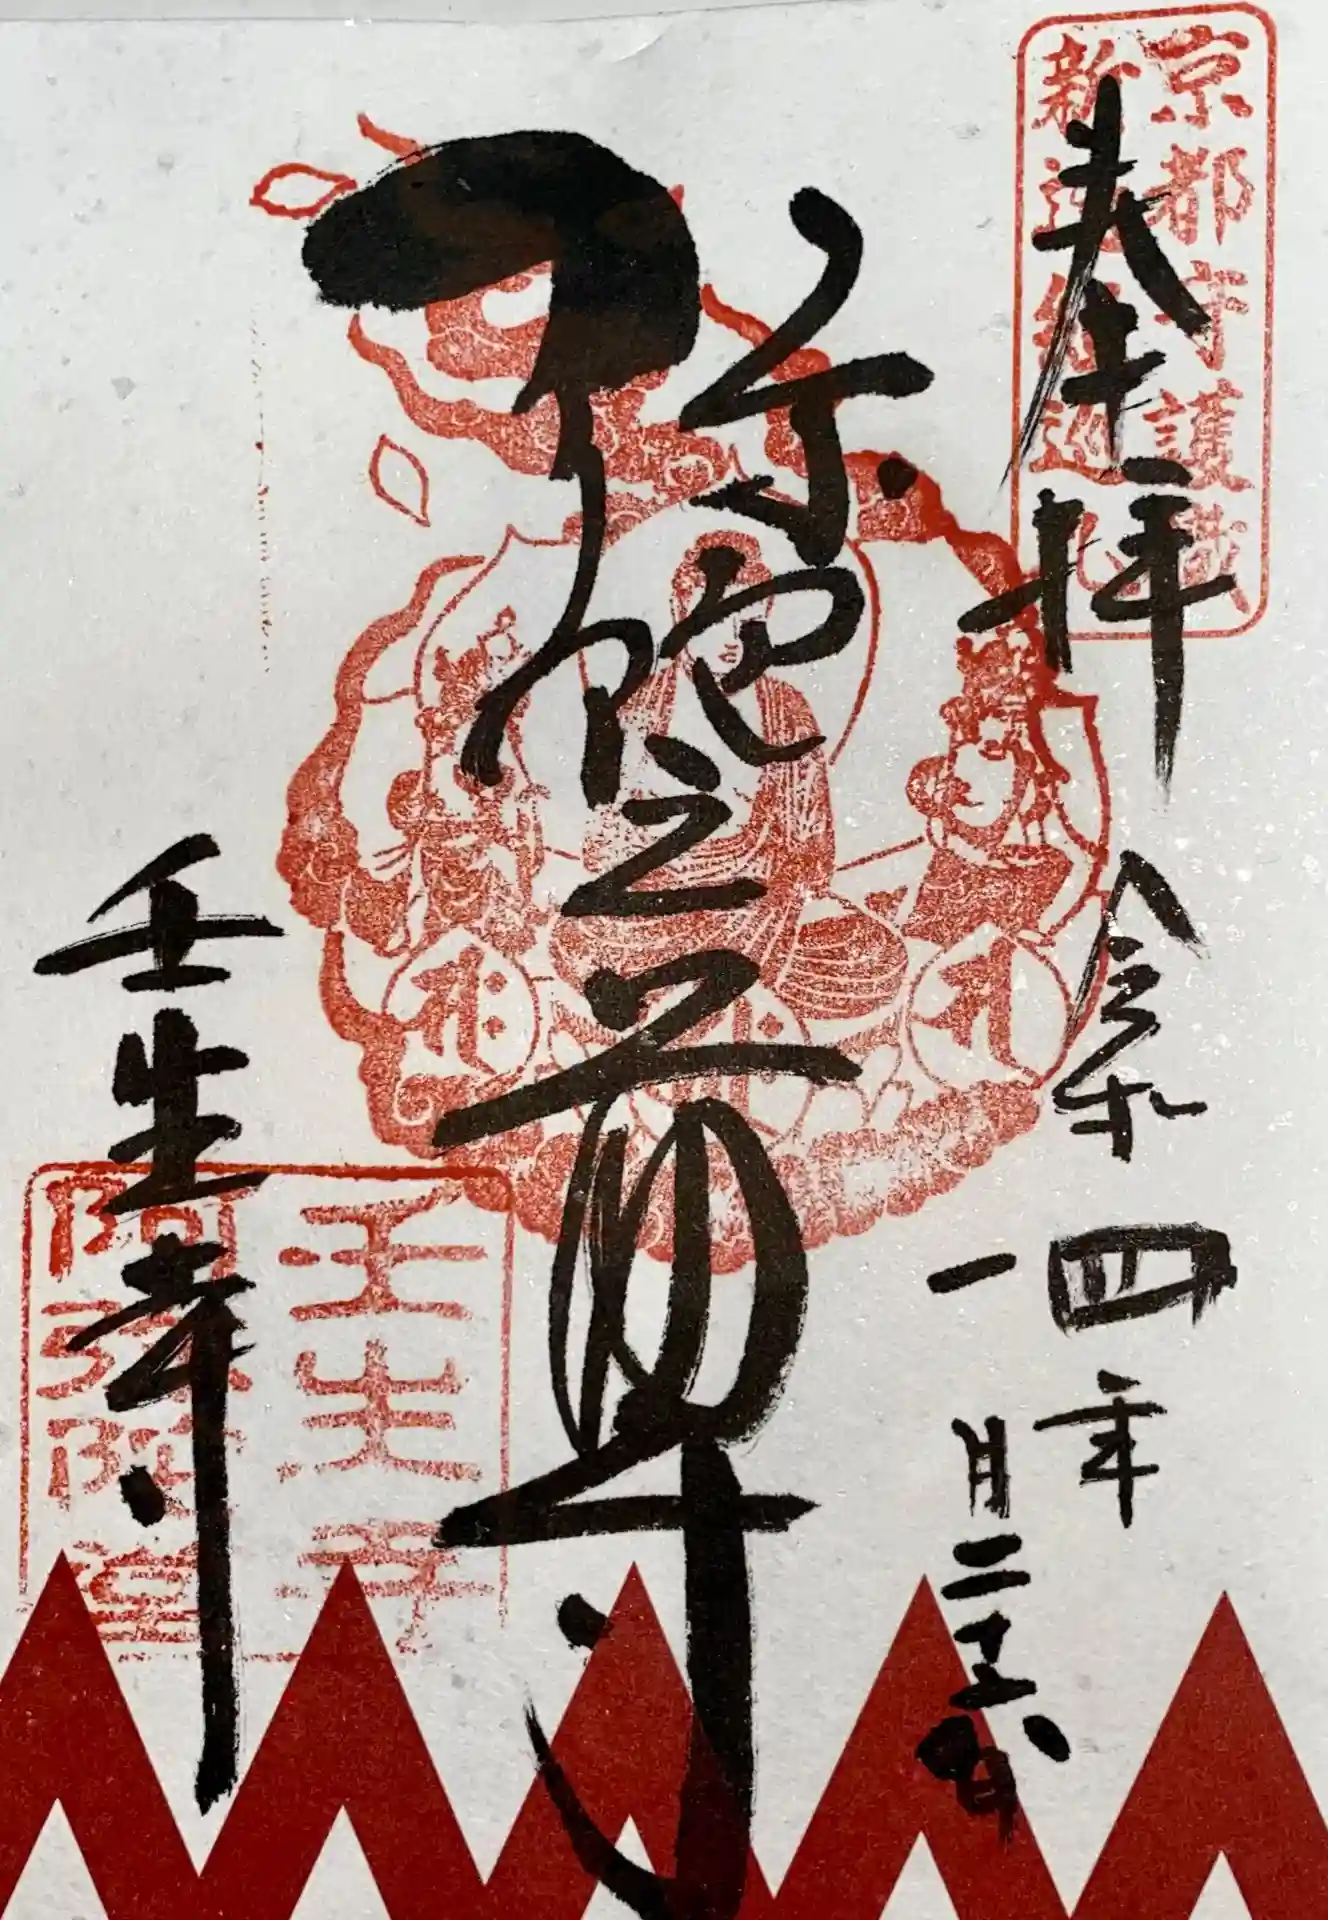 京都守護職
新選組巡礼
奉拝
令和四年
一月二十六日
弥陀三尊
壬生寺
壬生寺
阿弥陀堂